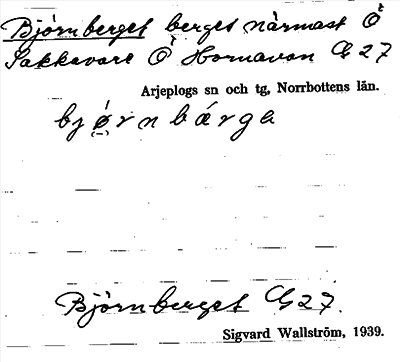 Björnberget berget närmast Ö
Sakkavare Ö Hornavan G 27
Arjeplogs sn och tg, Norrbottens län.
bjǿrnbárga
Björnberget G 27.
Sigvard Wallström, 1939.